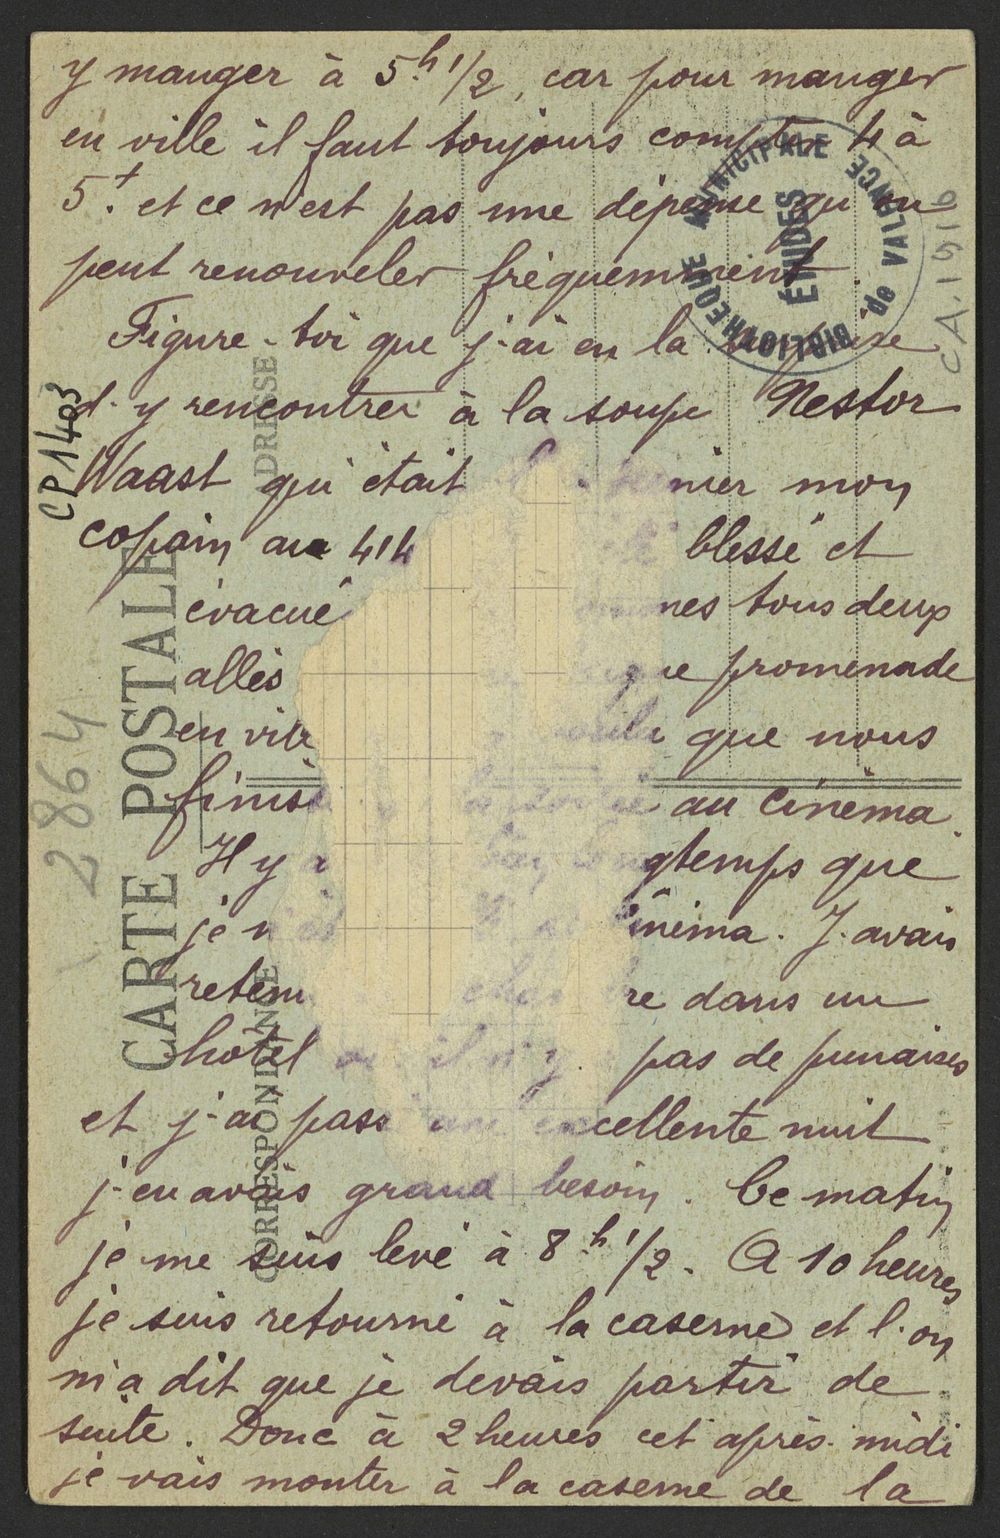 y manger à 5h 1/2, car pour manger
en ville il faut toujours compter 4 à
5f. et ce n'est pas une dépense qu'on
peut renouveler fréquemment.
Figure-toi que j'ai eu la surprise
d'y rencontrer à la soupe Nestor
Waast qui était nier mon
copain au 414 blessé et
évacué mes tous deux
allés promenade
en ville voilà que nous
finis au cinéma.
Il y a gtemps que
je n inéma. J'avais
retenu cham re dans un
hôtel où il n'y pas de punaises
et j'ai passé une excellente nuit
j'en avais grand besoin. Ce matin
je me suis levé à 8h 1/2. A 10 heures
je suis retourné à la caserne et l'on
m'a dit que je devais partir de
suite. Donc à 2 heures cet après-midi
je vais monter à la caserne de la
CARTE POSTALE
CORRESPONDANCE
ADRESSE
CP1403
2864
BIBLIOTHEQUE MUNICIPALE
de VALENCE
ÉTUDES